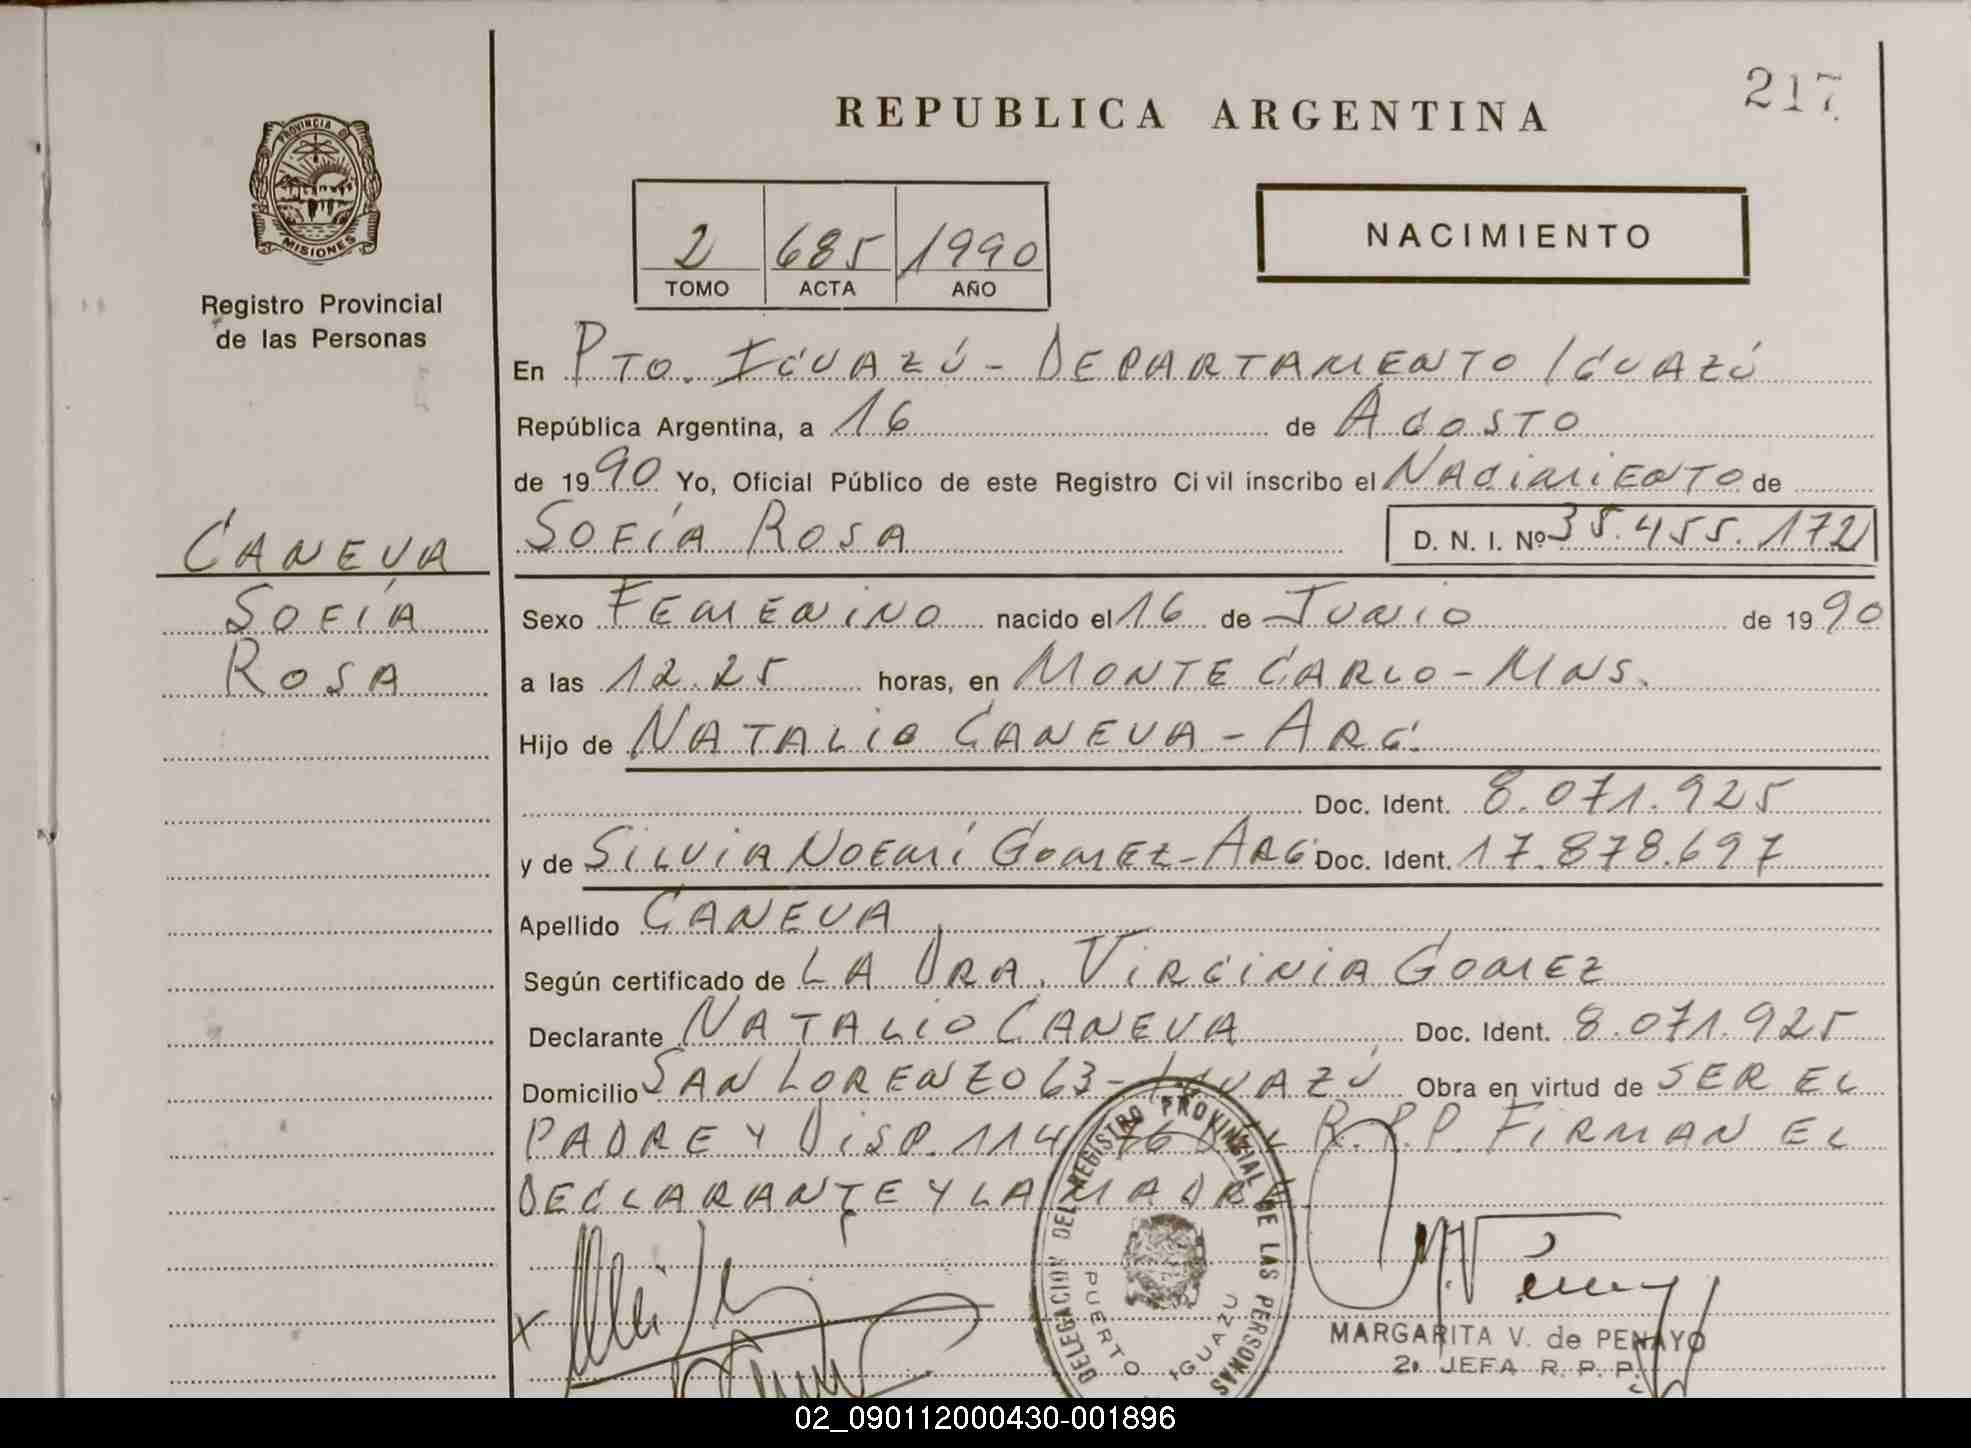 217
REPUBLICA ARGENTINA
PROVINCIA DE
MISIONES
Registro Provincial
de las Personas
2 685 1990
TOMO ACTA AÑO
NACIMIENTO
En PTO. IGUAZÚ - DEPARTAMENTO IGUAZÚ
República Argentina, a 16 de AGOSTO
de 1990 Yo, Oficial Público de este Registro Civil inscribo el NACIMIENTO de
SOFÍA ROSA D. N. I. Nº 35.455.172
CANEVA
SOFÍA
ROSA
Sexo FEMENINO nacido el 16 de JUNIO de 1990
a las 12.25 horas, en MONTE CARLO - MNS.
Hijo de NATALIO CANEVA - ARG.
Doc. Ident. 8.071.925
y de SILVIA NOEMÍ GOMEZ - ARG Doc. Ident. 17.878.697
Apellido CANEVA
Según certificado de LA DRA. VIRGINIA GOMEZ
Declarante NATALIO CANEVA Doc. Ident. 8.071.925
Domicilio SAN LORENZO 63 - IGUAZÚ Obra en virtud de SER EL
PADRE Y DISP. 114/76 DEL R.P.P. FIRMAN EL
DECLARANTE Y LA MADRE
DELEGACION DEL REGISTRO PROVINCIAL DE LAS PERSONAS
PUERTO IGUAZU
MARGARITA V. de PENAYO
2a JEFA R. P. P.
02_090112000430-001896